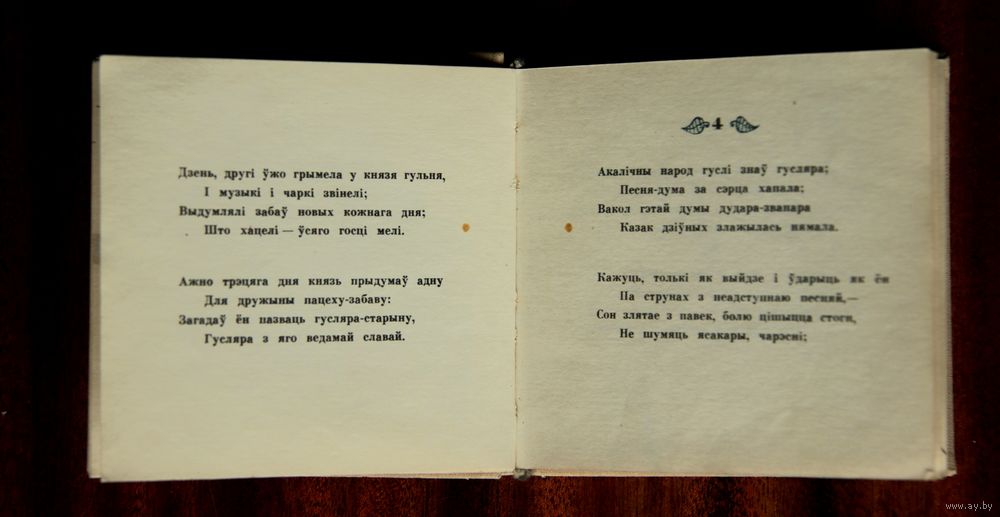 Дзень, другі ўжо грымела у князя гульня,
І музыкі і чаркі звінелі;
Выдумлялі забаў новых кожнага дня;
Што хацелі — ўсяго госці мелі.
Ажно трэцяга дня князь прыдумаў адну
Для дружыны пацеху-забаву:
Загадаў ён назваць гусляра-старыну,
Гусляра з яго ведамай славай.
4
Акалічны народ гуслі знаў гусляра;
Песня-дума за сэрца хапала;
Вакол гэтай думы дудара-званара
Казак дзіўных злажылась нямала.
Кажуць, толькі як выйдзе і ўдарыць як ён
Па струнах з неадступнаю песняй,—
Сон злятае з павек, болю цішыцца стогн,
Не шумяць ясакары, чарэсні;
www.ay.by